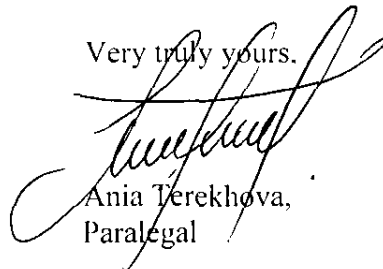 Very truly yours.
Ania Terekhova,
Paralegal